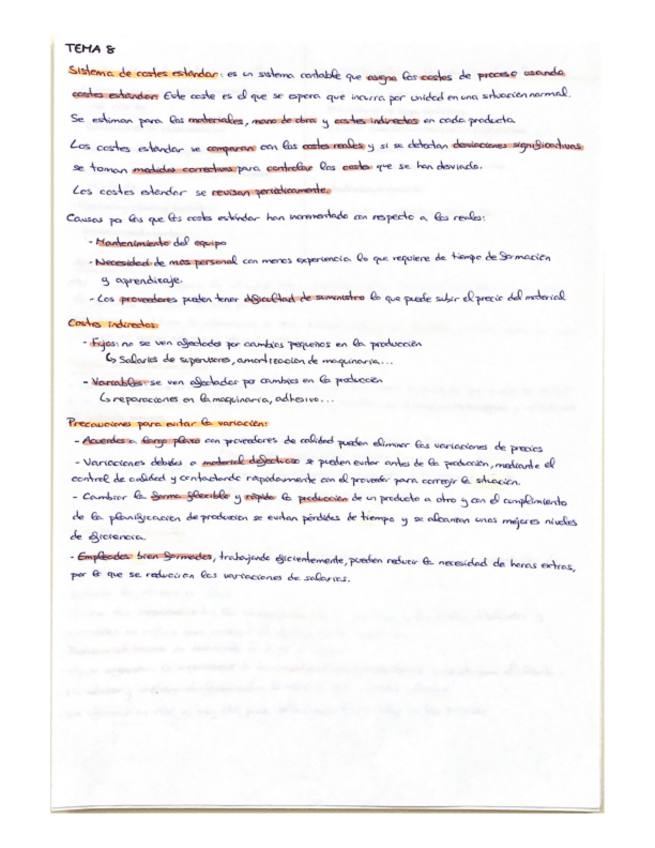 TEMA 8
Sistema de costes estándar: es un sistema contable que asigna los costes de proceso usando
costes estándar. Este coste es el que se espera que incurra por unidad en una situación normal.
Se estiman para los materiales, mano de obra y costes indirectos en cada producto.
Los costes estándar se comparan con los costes reales y si se detectan desviaciones significativas
se toman medidas correctivas para controlar los costes que se han desviado.
Los costes estándar se revisan periódicamente.
Causas por las que los costes estándar han incrementado con respecto a los reales:
- Mantenimiento del equipo
- Necesidad de más personal con menos experiencia lo que requiere de tiempo de formación
y aprendizaje.
- Los proveedores pueden tener dificultad de suministro lo que puede subir el precio del material
Costes indirectos
- Fijos: no se ven afectados por cambios pequeños en la producción
↳ Salarios de supervisores, amortización de maquinaria...
- Variables: se ven afectados por cambios en la producción
↳ reparaciones en la maquinaria, adhesivo...
Precauciones para evitar la variación:
- Acuerdos a largo plazo con proveedores de calidad pueden eliminar las variaciones de precios
- Variaciones debidas a material defectuoso se pueden evitar antes de la producción, mediante el
control de calidad y contactando rápidamente con el proveedor para corregir la situación.
- Cambiar de forma flexible y rápida la producción de un producto a otro y con el cumplimiento
de la planificación de producción se evitan pérdidas de tiempo y se alcanzan unos mejores niveles
de eficiencia.
- Empleados bien formados, trabajando eficientemente, pueden reducir la necesidad de horas extras,
por lo que se reducirán las variaciones de salarios.